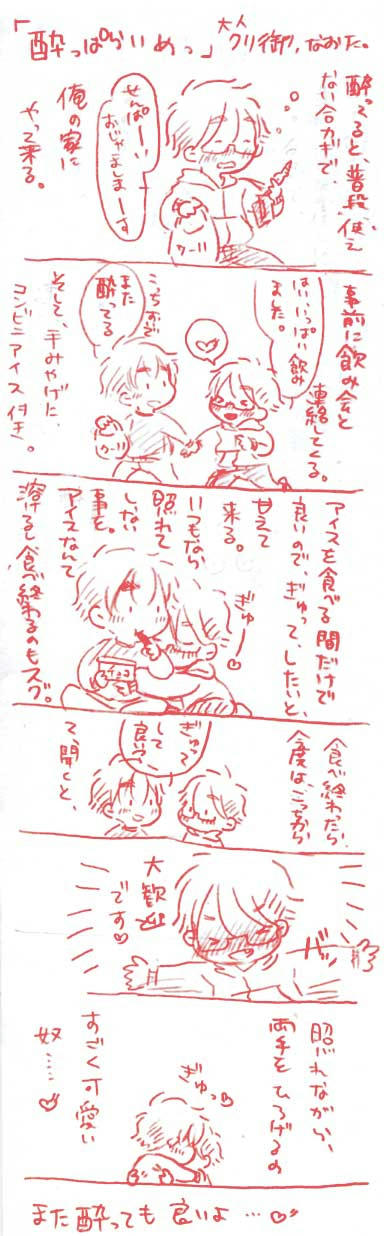 「酔っぱらいめっ」大人クリ御、なおた。
酔ってると、普段、使え
ない合カギで
俺の家に
やって来る。
せんぱーーい
おじゃましまーす
ワー!!
事前に飲み会と
連絡してくる。
はい、いっぱい飲み
ました。
まだ
酔ってる
そして、手みやげに、
コンビニアイス付き。
アイスを食べる間だけで
良いので、ぎゅって、したいと、
甘えて
来る。
いつもなら
照れて
しない
事を。
アイスなんて
溶けるし食べ終わるのもスグ。
ぎゅー
チョコ
食べ終わったら
今度は、こっちから
ぎゅって
して
良い?
て、聞くと、
バッ
大歓迎
です
照れながら、
両手をひろげるの
ぎゅっ
すごく可愛い
奴……
また酔っても良いよ…